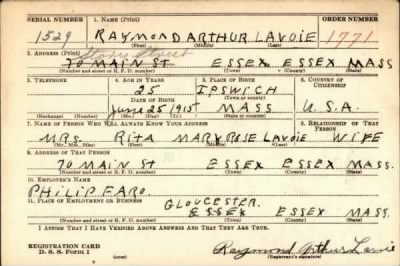 SERIAL NUMBER 1. NAME (Print) ORDER NUMBER
1529 RAYMOND ARTHUR LAVOIE 1771
(First) (Middle) (Last)
2. ADDRESS (Print) Street
70 MAIN ST ESSEX ESSEX MASS
(Number and street or R. F. D. number) (Town) (County) (State)
3. TELEPHONE 4. AGE IN YEARS 5. PLACE OF BIRTH 6. COUNTRY OF CITIZENSHIP
25 IPSWICH
DATE OF BIRTH
June 25 1915 MASS U.S.A.
(Exchange) (No.) (Mo.) (Day) (Yr.) (Town or county) (State or country)
7. NAME OF PERSON WHO WILL ALWAYS KNOW YOUR ADDRESS 8. RELATIONSHIP OF THAT PERSON
MRS RITA MARY ROSE LAVOIE WIFE
(Mr., Mrs., Miss) (First) (Middle) (Last)
9. ADDRESS OF THAT PERSON
70 MAIN ST ESSEX ESSEX MASS.
(Number and street or R. F. D. number) (Town) (County) (State)
10. EMPLOYER'S NAME
PHILIP EARO.
11. PLACE OF EMPLOYMENT OR BUSINESS
GLOUCESTER.
ESSEX ESSEX MASS
(Number and street or R. F. D. number) (Town) (County) (State)
I AFFIRM THAT I HAVE VERIFIED ABOVE ANSWERS AND THAT THEY ARE TRUE.
REGISTRATION CARD
D. S. S. Form 1
Raymond Arthur Lavoie
(Registrant's signature)